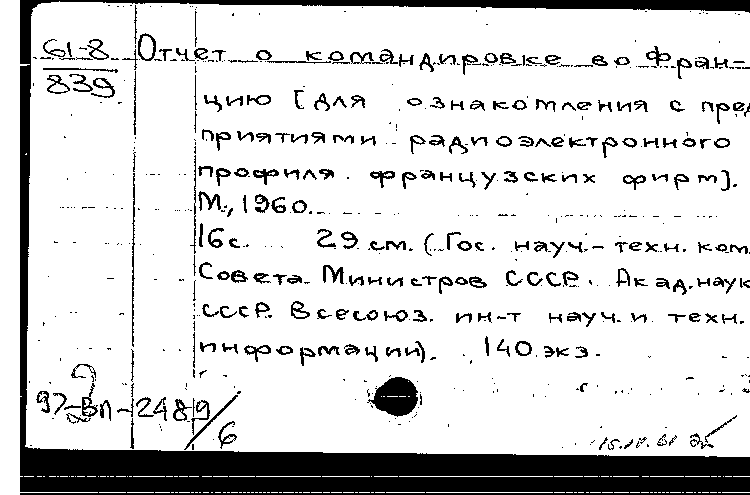 61-8 Отчет о командировке во Фран-
839
цию [для ознакомления с пред
приятиями радиоэлектронного
профиля французских фирм].
М., 1960.
16с. 29 см. (Гос. науч.-техн. ком.
Совета Министров СССР. Акад. наук
СССР. Всесоюз. ин-т науч. и техн.
информации). 140 экз.
97-ВП-2489/6